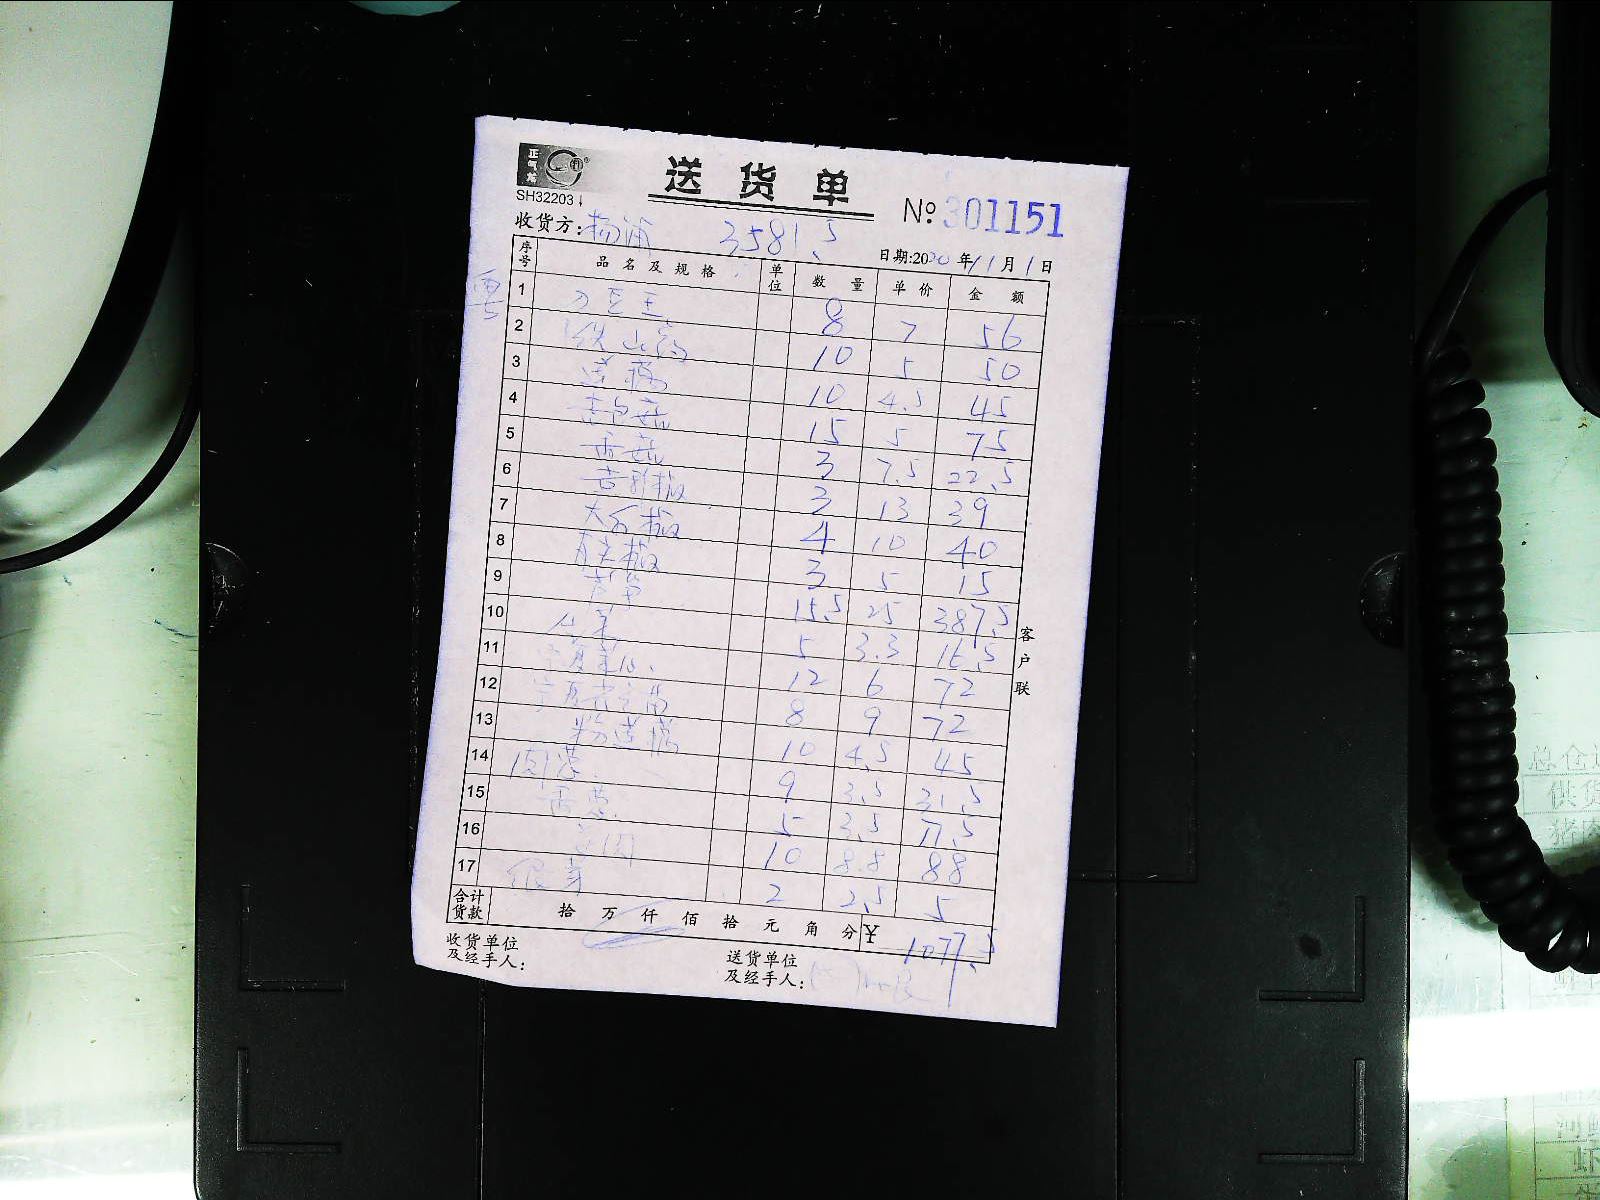 正气
送货单
SH32203
№ 301151
收货方: 杨浦 3581.5
日期:2020年11月1日
序号 品名及规格 单位 数量 单价 金额
1 刀豆王 8 7 56
2 铁山药 10 5 50
3 莲藕 10 4.5 45
4 杏鲍菇 15 5 75
5 香菇 3 7.5 22.5
6 3 13 39
7 4 10 40
8 3 5 15
9 芦笋 15.5 25 387.5
10 5 3.3 16.5
11 宁夏菜心 12 6 72
12 宁夏 8 9 72
13 粉莲藕 10 4.5 45
14 9 3.5 31.5
15 5 3.5 17.5
16 10 8.8 88
17 银芽 2 2.5 5
合计货款 拾 万 仟 佰 拾 元 角 分 ¥ 1077.5
收货单位及经手人:
送货单位及经手人:
客户联
总仓
供货
猪
河
虾